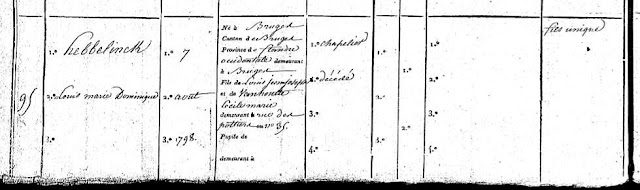 95
1.° hebbelinck
2.° Louis marie Dominique
3.°
1.° 7
2.° aout
3.° 1798.
Né à Bruges
Canton de Bruges
Province de flandre
occidentale demeurant
à Bruges
Fils de Louis jean joseph
et de Vanhoutte
Cecile marie
demeurant à rue des
potiers n.° 35.
Pupile de
demeurant à
1.° chapelier
2.° décédé
3.°
4.°
1.°
2.°
1.°
2.°
3.°
4.°
fils unique